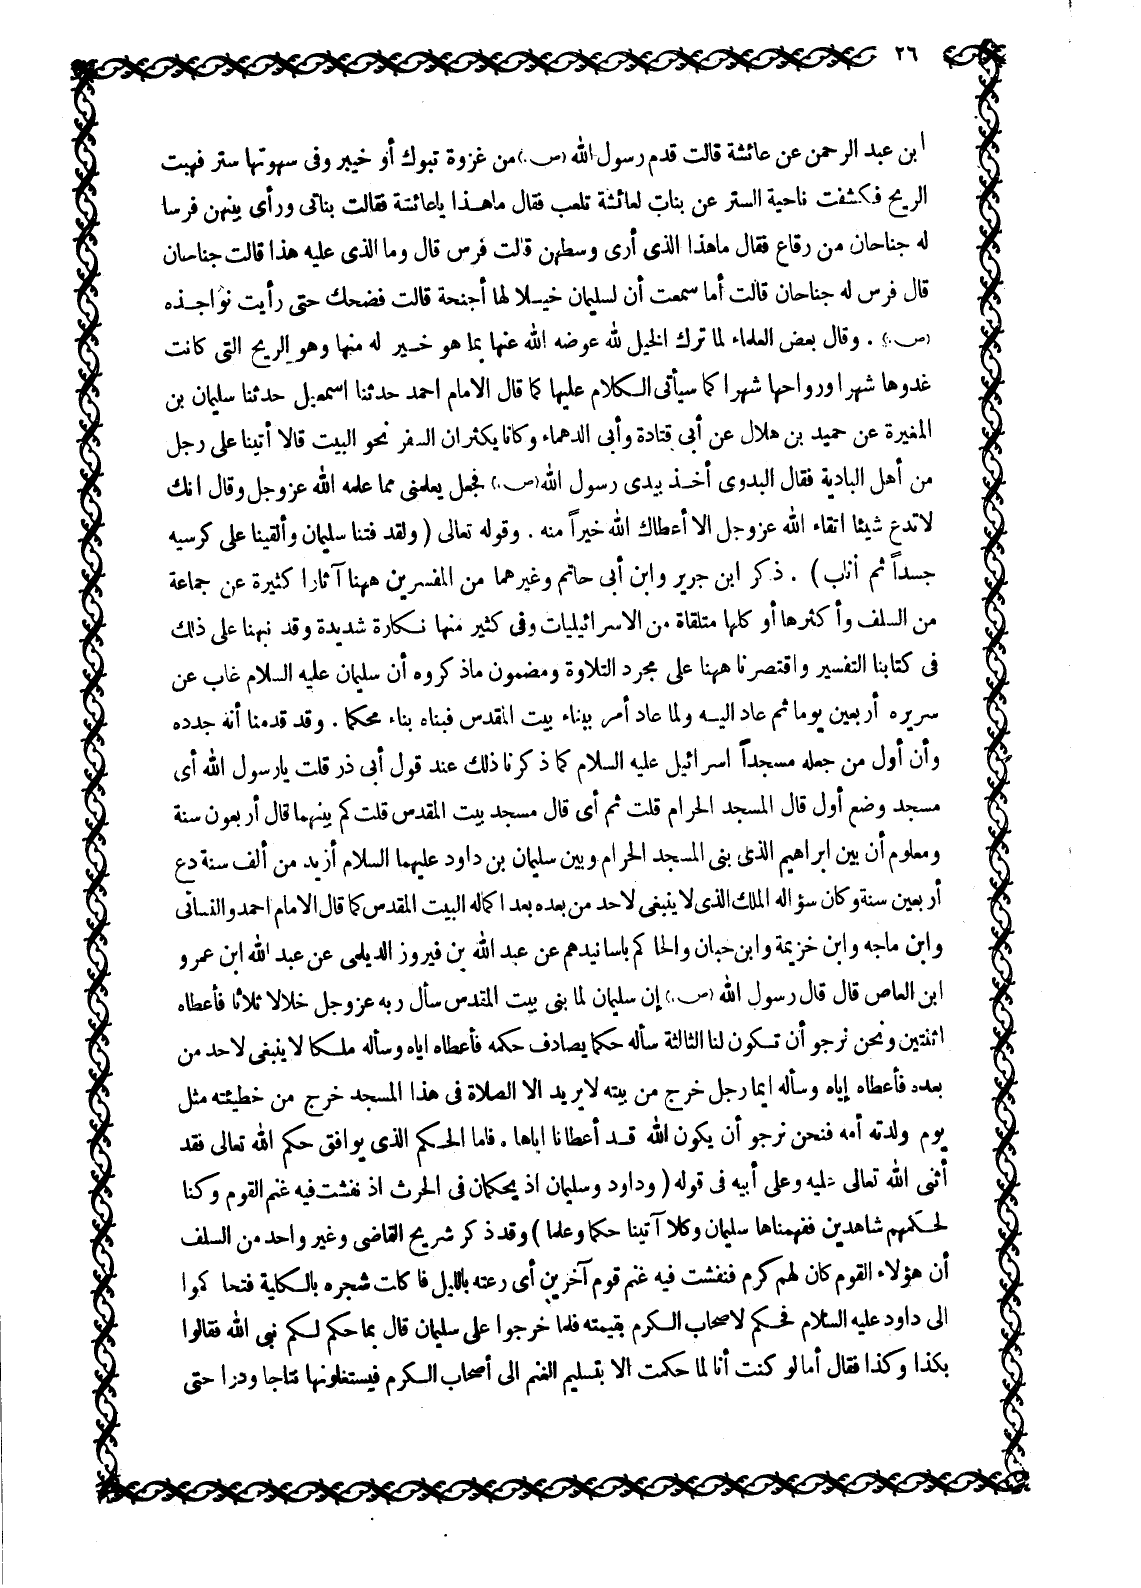 ٢٦
ابن عبد الرحمن عن عائشة قالت قدم رسول الله (ص.) من غزوة تبوك أو خيبر وفى سهوتها ستر فهبت
الريح فكشفت ناحية الستر عن بنات لعائشة تلعب فقال ماهذا ياعائشة فقالت بناتى ورأى بينهن فرسا
له جناحان من رقاع فقال ماهذا الذى أرى وسطهن قالت فرس قال وما الذى عليه هذا قالت جناحان
قال فرس له جناحان قالت أما سمعت أن لسليمان خيلا لها أجنحة قالت فضحك حتى رأيت نواجذه
(ص.) . وقال بعض العلماء لما ترك الخيل لله عوضه الله عنها بما هو خير له منها وهو الريح التى كانت
غدوها شهرا ورواحها شهرا كما سيأتى الكلام عليها كما قال الامام احمد حدثنا اسمعيل حدثنا سليمان بن
المغيرة عن حميد بن هلال عن أبى قتادة وأبى الدهماء وكانا يكثران السفر نحو البيت قالا أتينا على رجل
من أهل البادية فقال البدوى أخذ بيدى رسول الله (ص.) فجعل يعلمنى مما علمه الله عزوجل وقال انك
لاتدع شيئا اتقاء الله عزوجل الا أعطاك الله خيراً منه . وقوله تعالى ( ولقد فتنا سليمان وألقينا على كرسيه
جسداً ثم أناب ) . ذكر ابن جرير وابن أبى حاتم وغيرهما من المفسرين ههنا آثارا كثيرة عن جماعة
من السلف وأكثرها أو كلها متلقاة من الاسرائيليات وفى كثير منها نكارة شديدة وقد نبهنا على ذلك
فى كتابنا التفسير واقتصرنا ههنا على مجرد التلاوة ومضمون ماذكروه أن سليمان عليه السلام غاب عن
سريره أربعين يوما ثم عاد اليه ولما عاد أمر ببناء بيت المقدس فبناه بناء محكما . وقد قدمنا أنه جدده
وأن أول من جعله مسجداً اسرائيل عليه السلام كما ذكرنا ذلك عند قول أبى ذر قلت يارسول الله أى
مسجد وضع أول قال المسجد الحرام قلت ثم أى قال مسجد بيت المقدس قلت كم بينهما قال أربعون سنة
ومعلوم أن بين ابراهيم الذى بنى المسجد الحرام وبين سليمان بن داود عليهما السلام أزيد من ألف سنة دع
أربعين سنة وكان سؤاله الملك الذى لا ينبغى لاحد من بعده بعد اكماله البيت المقدس كما قال الامام احمد والنسائى
وابن ماجه وابن خزيمة وابن حبان والحاكم باسانيدهم عن عبد الله بن فيروز الديلمى عن عبد الله ابن عمرو
ابن العاص قال قال رسول الله (ص.) إن سليمان لما بنى بيت المقدس سأل ربه عزوجل خلالا ثلاثا فأعطاه
اثنتين ونحن نرجو أن تكون لنا الثالثة سأله حكما يصادف حكمه فأعطاه اياه وسأله ملكا لا ينبغى لاحد من
بعده فأعطاه إياه وسأله ايما رجل خرج من بيته لا يريد الا الصلاة فى هذا المسجد خرج من خطيئته مثل
يوم ولدته أمه فنحن نرجو أن يكون الله قد أعطانا اياها . فاما الحكم الذى يوافق حكم الله تعالى فقد
أثنى الله تعالى عليه وعلى أبيه فى قوله ( وداود وسليمان اذ يحكمان فى الحرث اذ نفشت فيه غنم القوم وكنا
لحكمهم شاهدين ففهمناها سليمان وكلا آتينا حكما وعلما ) وقد ذكر شريح القاضى وغير واحد من السلف
أن هؤلاء القوم كان لهم كرم فنفشت فيه غنم قوم آخرين أى رعته بالليل فاكلت شجره بالكلية فتحاكموا
الى داود عليه السلام فحكم لاصحاب الكرم بقيمته فلما خرجوا على سليمان قال بما حكم لكم نبى الله فقالوا
بكذا وكذا فقال أما لو كنت أنا لما حكمت الا بتسليم الغنم الى أصحاب الكرم فيستغلونها نتاجا ودرا حتى